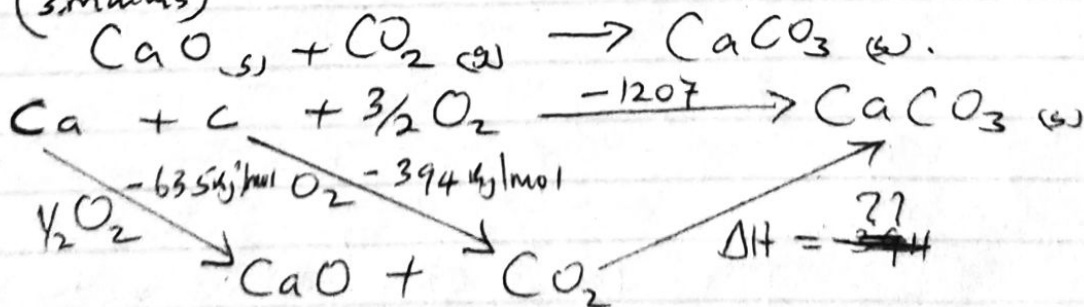 (3 marks)
CaO (s) + CO₂ (g) → CaCO₃ (s).
Ca + C + 3/2 O₂ -1207 → CaCO₃ (s)
½O₂ -635kj/mol O₂ -394 kj/mol
CaO + CO₂ ΔH = ??